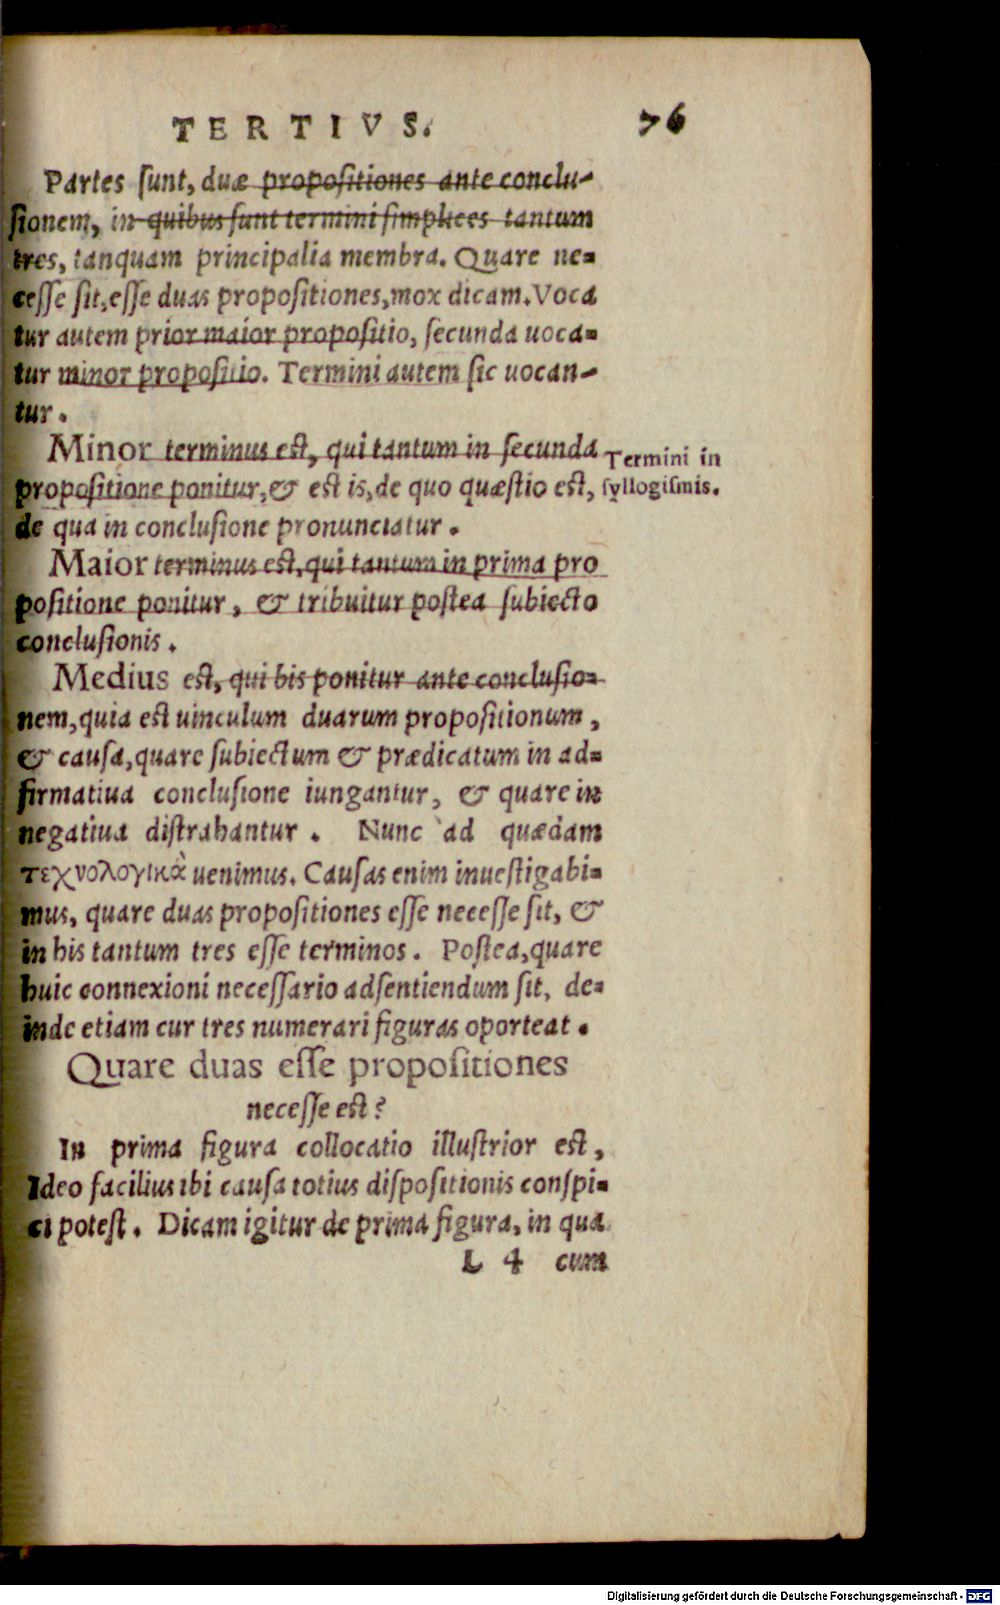 TERTIVS. 76
Partes sunt, duæ propositiones ante conclu-
sionem, in quibus sunt termini simplices tantum
tres, tanquam principalia membra. Quare ne-
cesse sit, esse duas propositiones, mox dicam. Voca
tur autem prior maior propositio, secunda uoca-
tur minor propositio. Termini autem sic uocan-
tur.
Minor terminus est, qui tantum in secunda
Termini in
propositione ponitur, & est is, de quo quæstio est,
syllogismis.
de qua in conclusione pronunciatur.
Maior terminus est, qui tantum in prima pro
positione ponitur, & tribuitur postea subiecto
conclusionis.
Medius est, qui bis ponitur ante conclusio-
nem, quia est uinculum duarum propositionum,
& causa, quare subiectum & prædicatum in ad-
firmatiua conclusione iungantur, & quare in
negatiua distrahantur. Nunc ad quædam
τεχνολογικὰ uenimus. Causas enim inuestigabi-
mus, quare duas propositiones esse necesse sit, &
in his tantum tres esse terminos. Postea, quare
huic connexioni necessario adsentiendum sit, de-
inde etiam cur tres numerari figuras oporteat.
Quare duas esse propositiones
necesse est?
In prima figura collocatio illustrior est,
Ideo facilius ibi causa totius dispositionis conspi-
ci potest. Dicam igitur de prima figura, in qua
L 4 cum
Digitalisierung gefördert durch die Deutsche Forschungsgemeinschaft - DFG